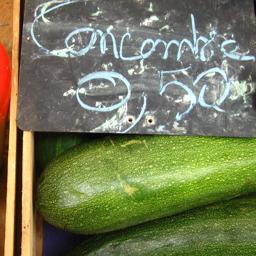 Concombre
0,50